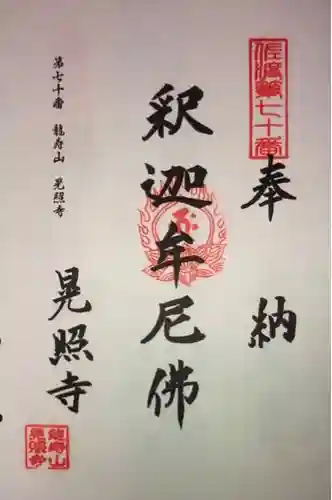 佐渡第七十番
奉納
釈迦牟尼佛
第七十番 龍寿山 晃照寺
晃照寺
龍寿山
晃照寺